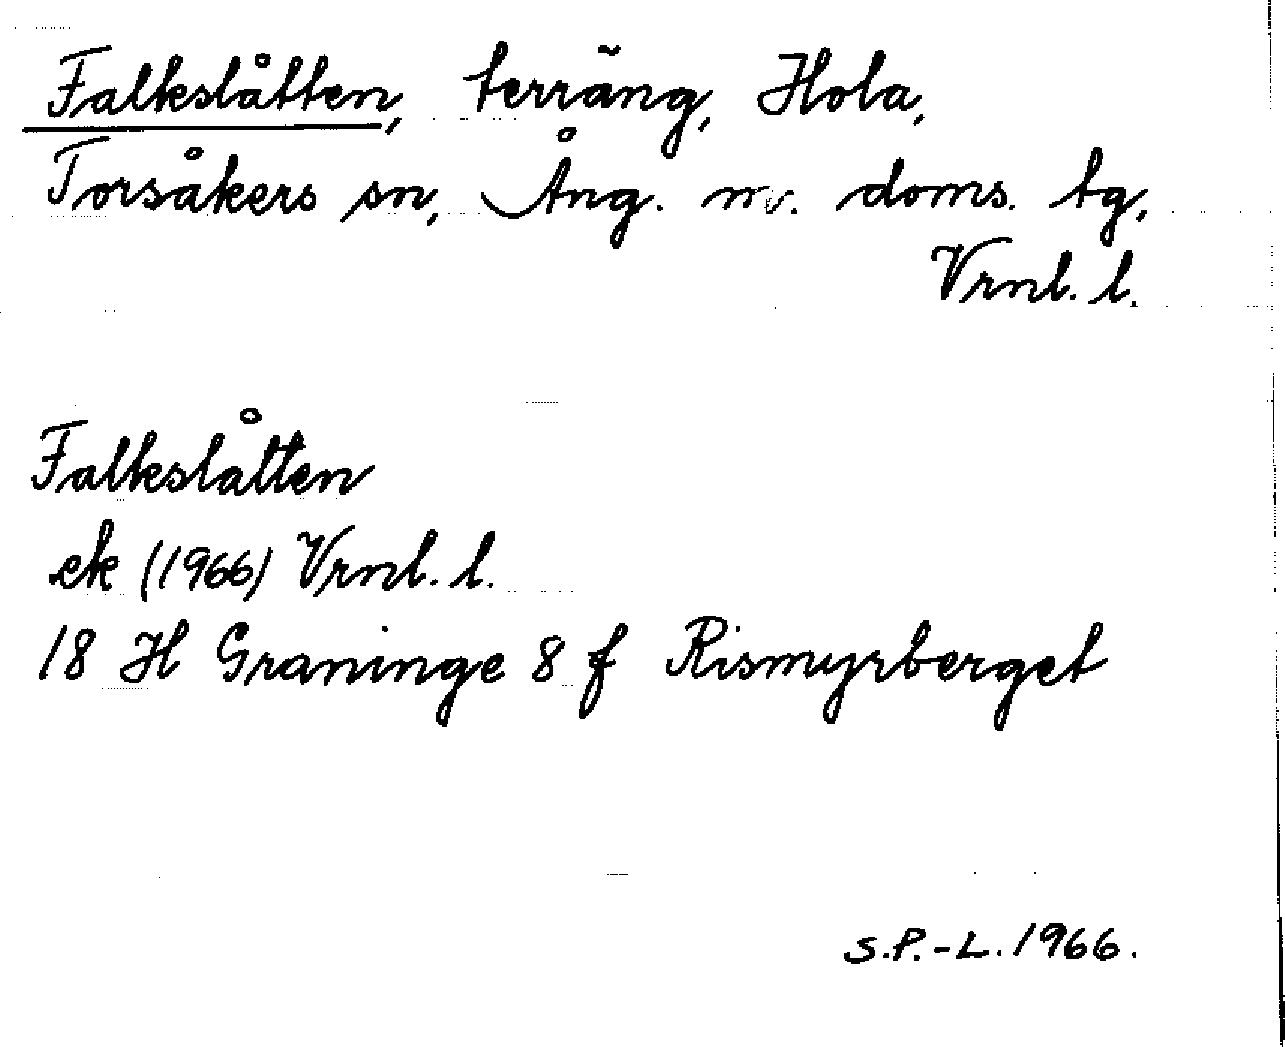 Falkslåtten, terräng, Hola,
Torsåkers sn, Ång. mv. doms. tg,
Vrnl. l.
Falkslåtten
ek (1966) Vrnl. l.
18 H Graninge 8 f Rismyrberget
S.P.-L. 1966.